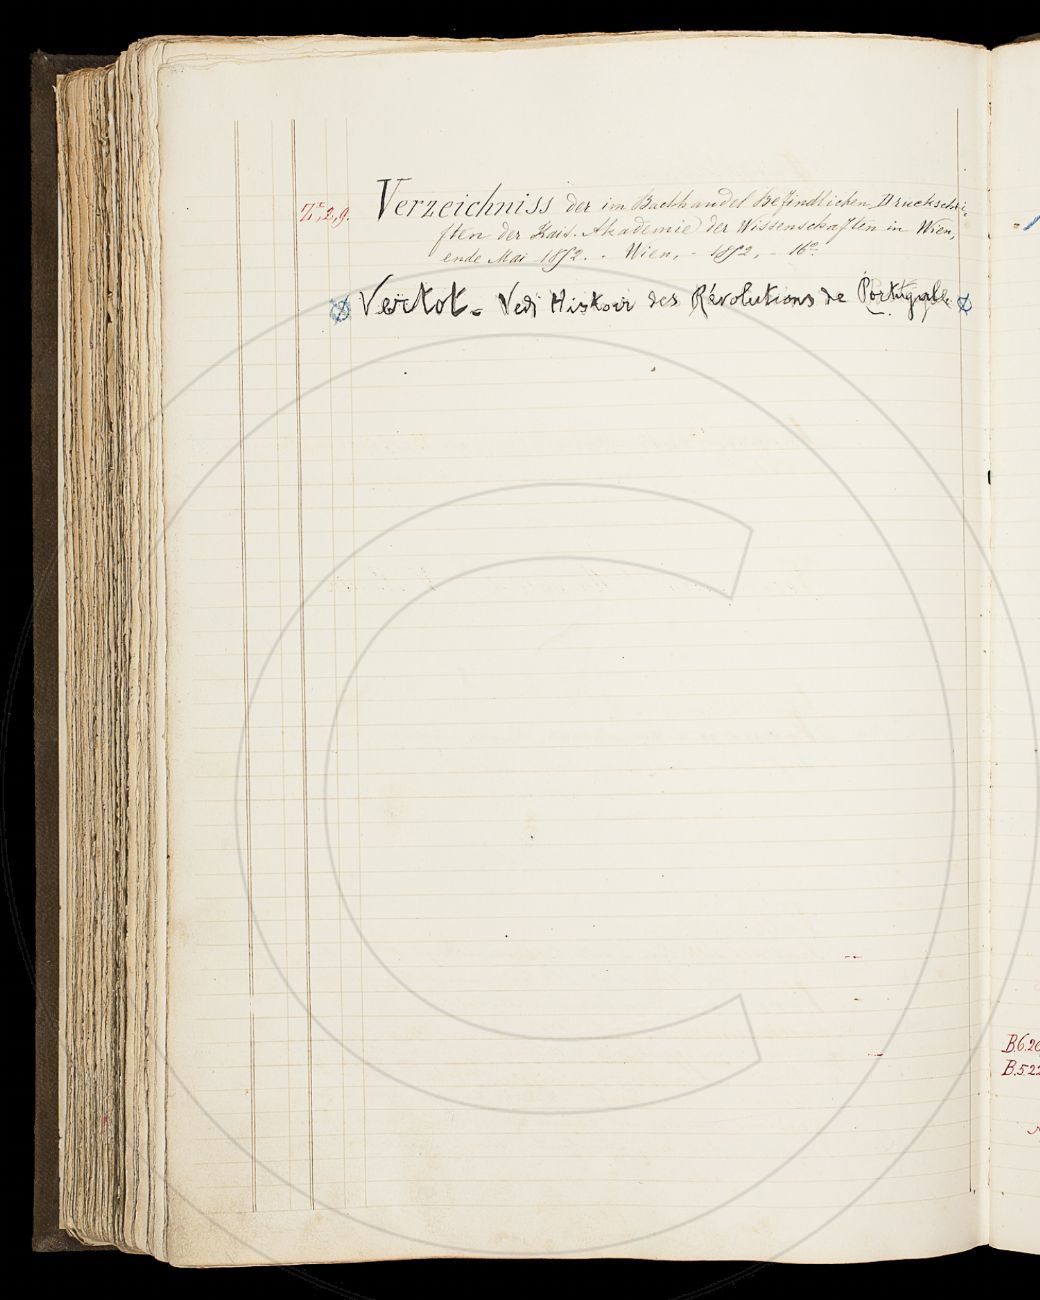 Z.ª,2,9. Verzeichniss der im Buchhandel befindlichen Druckschri-
ften der Kais. Akademie der Wissenschaften in Wien,
ende Mai 1852. - Wien, - 1852, - 16º.
Vertot - Vedi Histoir des Révolutions de Portugal
B.6.26
B.5.22